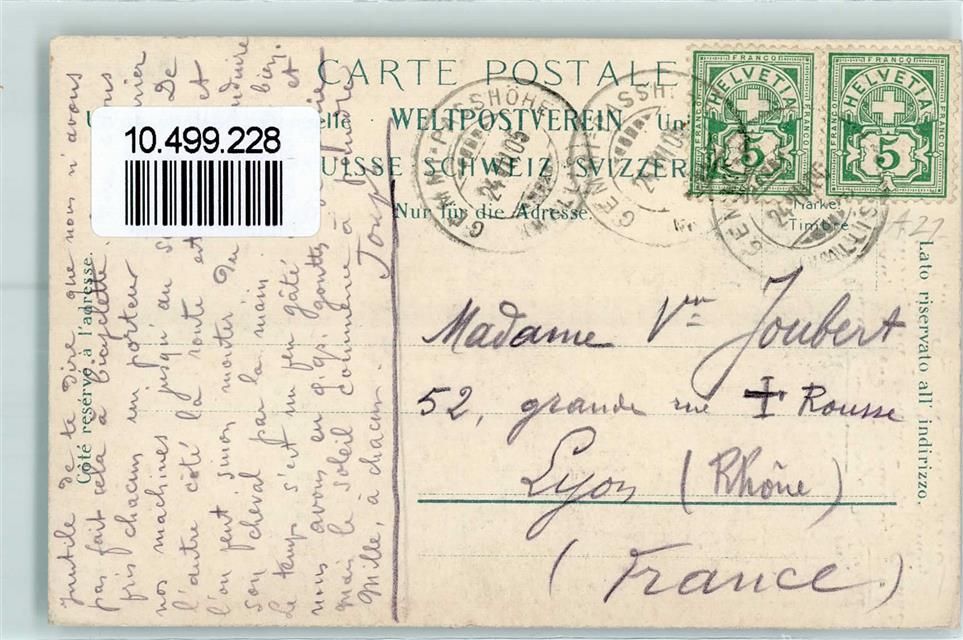 CARTE POSTALE
WELTPOSTVEREIN
SUISSE SCHWEIZ SVIZZERA
Nur für die Adresse.
Côté réservé à l'adresse.
Lato riservato all' indirizzo.
Marke
Timbre
FRANCO
HELVETIA
5
FRANCO
HELVETIA
5
GEMMI-PASSHÖHE
24.VII.05
10.499.228
A 21
Madame Vve Joubert
52, grande rue + Rousse
Lyon (Rhône)
(France)
Inutile de te dire que nous n'avons
pas fait cela à bicyclette.
pris chacun un porteur
nos machines jusqu'au
l'autre côté la route et
l'on peut sinon monter du
son cheval par la main.
Le temps s'est un peu gâté et
nous avons eu qqs. gouttes
mais le soleil commence à
Mille, à chacun.